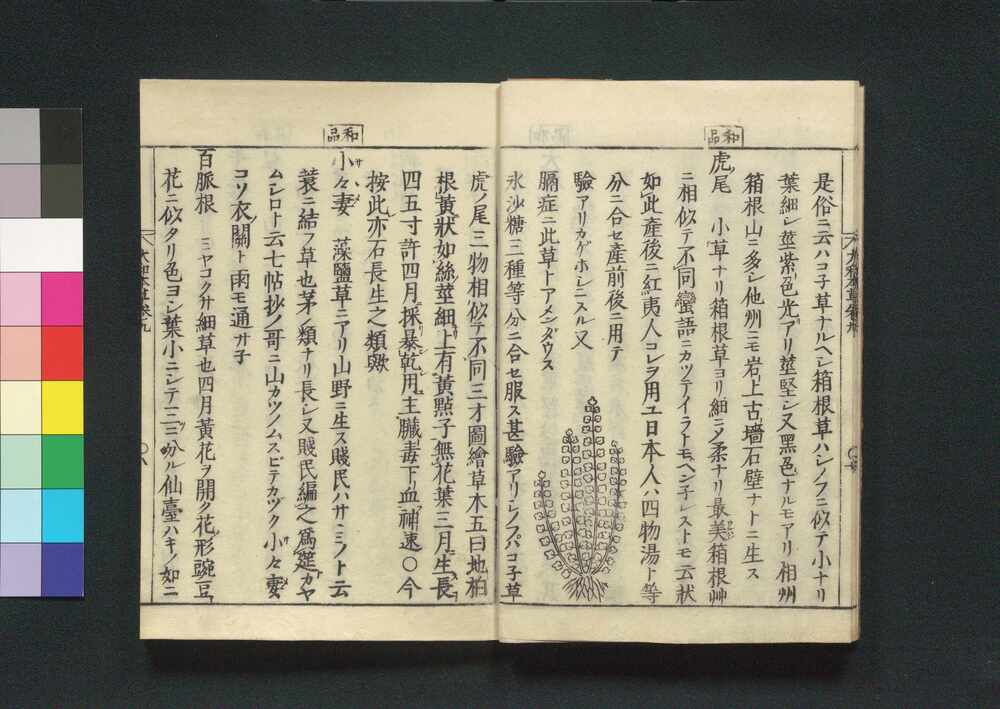 和品
是俗ニ云ハコ子草ナルヘシ箱根草ハシノフニ似テ小ナリ
葉細シ莖紫色光アリ莖堅シ又黑色ナルモアリ相州
箱根山ニ多シ他州ニモ岩上古墻石壁ナトニ生ス
虎尾 小草ナリ箱根草ヨリ細ニ乄柔ナリ最美箱根艸
ニ相似テ不同蠻語ニカツテイラトモヘン子レストモ云狀
如此産後ニ紅夷人コレヲ用ユ日本人ハ四物湯ト等
分ニ合セ産前後ニ用テ
驗アリカゲホシニスル又
膈症ニ此草トアメンダウス
氷沙糖三種等分ニ合セ服ス甚驗アリシノブハコ子草
和品
虎ノ尾三物相似テ不同三才圖繪草木五曰地柏
根黄狀如絲莖細上有黄㸃子無花葉三月生長
四五寸許四月採暴乾用主臟毒下血神速○今
按此亦石長生之類歟
小々妻 藻鹽草ニアリ山野ニ生ス賤民ハサミノト云
蓑ニ結フ草也茅ノ類ナリ長シ又賤民編之爲筵カヤ
ムシロト云七帖抄ノ哥ニ山カツノムスビテカツク小々妻
コソ衣關ト雨モ通サ子
百脈根 ミヤコクサ細草也四月黄花ヲ開ク花形豌豆
花ニ似タリ色ヨシ葉小ニシテ三三分ル仙臺ハキノ如ニ